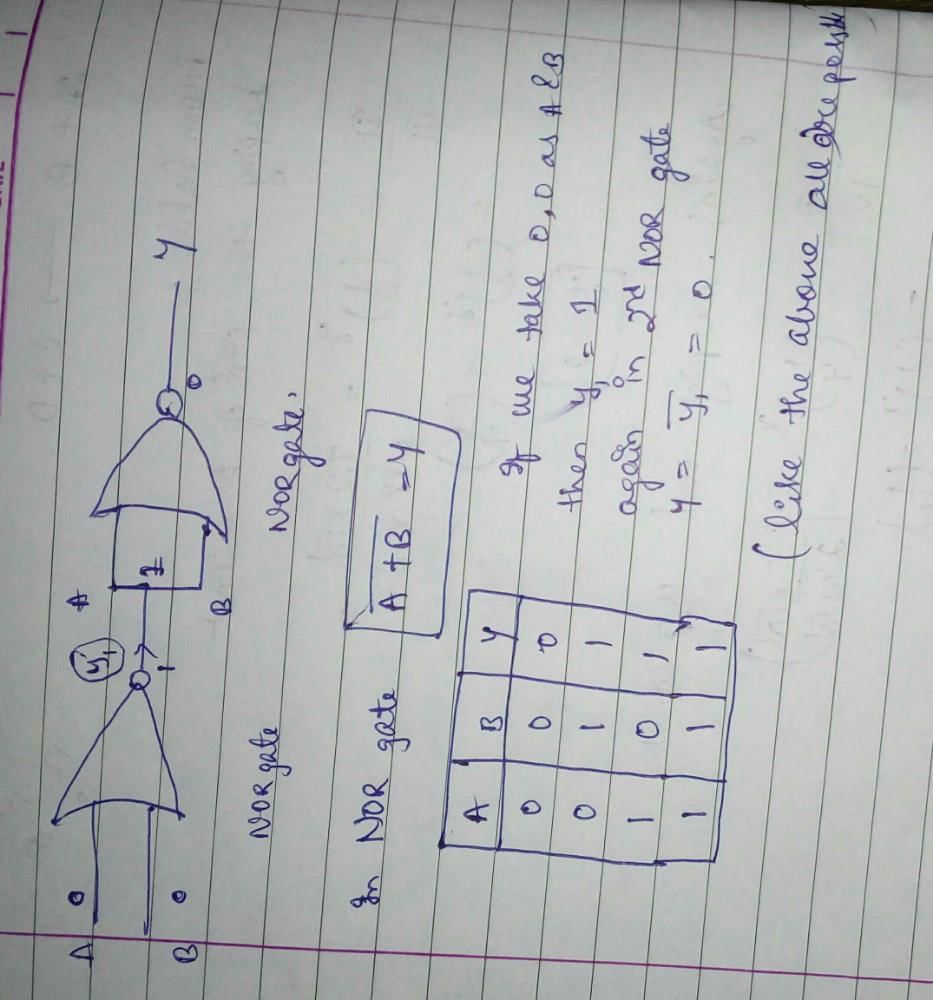 A 0
B 0
y₁
1
A
1
B
0
Y
NOR gate
NOR gate.
In NOR gate
A̅ ̅+̅ ̅B̅ = Y
A B Y
0 0 0
0 1 1
1 0 1
1 1 1
If we take 0,0 as A & B
then y₁ = 1
again in 2nd NOR gate
y = y̅₁ = 0.
(like the above all are